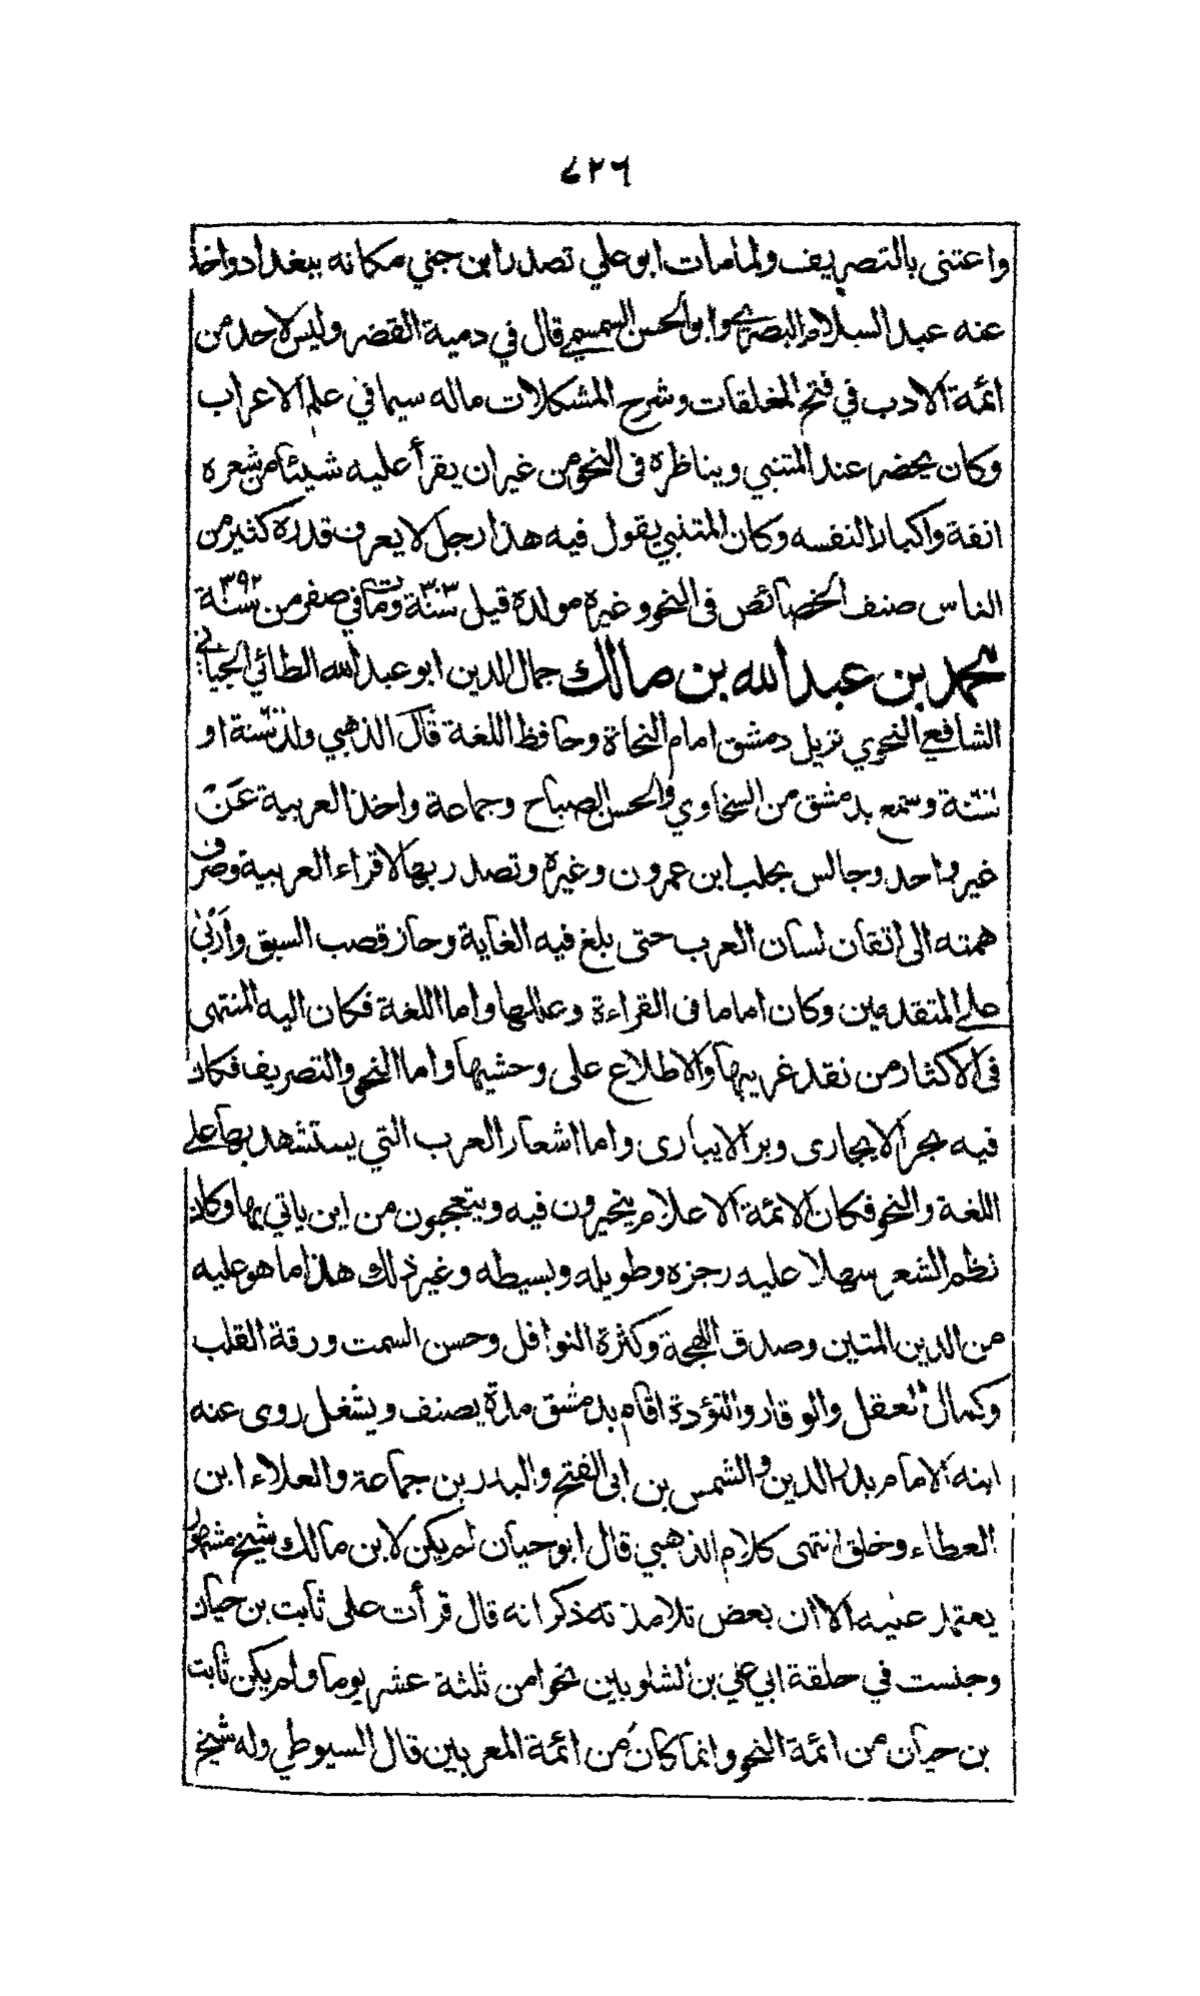 ٧٢٦
واعتنى بالتصريف ولمامات ابو علي تصدر ابن جني مكانه ببغداد واخذ
عنه عبد السلام البصري وابو الحسن السمسمي قال في دمية القصر وليس لاحد من
ائمة الادب في فتح المغلقات وشرح المشكلات ماله سيما في علم الاعراب
وكان يحضر عند المتنبي ويناظره فى النحو من غير ان يقرأ عليه شيئا من شعره
انفة واكبارا لنفسه وكان المتنبي يقول فيه هذا رجل لا يعرف قدره كثير من
الناس صنف الخصائص فى النحو وغيره مولده قبل سنة ٣٠٣ ومات في صفر من سنة ٣٩٢
محمد بن عبد الله بن مالك جمال الدين ابو عبد الله الطائي الجياني
الشافعي النحوي نزيل دمشق امام النحاة وحافظ اللغة قال الذهبي ولد سنة او
سنة وسمع بدمشق من السخاوي والحسن الصباح وجماعة واخذ العربية عن
غير واحد وجالس بحلب ابن عمرون وغيره وتصدر بها لاقراء العربية وصرف
همته الى اتقان لسان العرب حتى بلغ فيه الغاية وحاز قصب السبق وأربى
على المتقدمين وكان اماما فى القراءة وعللها واما اللغة فكان اليه المنتهى
فى الاكثار من نقد غريبها والاطلاع على وحشيها واما النحو والتصريف فكان
فيه بحر الايجارى وبر الايبارى واما اشعار العرب التي يستشهد بها على
اللغة والنحو فكان الائمة الاعلام يتحيرون فيه ويتعجبون من اين ياتي بها وكان
نظم الشعر سهلا عليه رجزه وطويله وبسيطه وغير ذلك هذا ما هو عليه
من الدين المتين وصدق اللهجة وكثرة النوافل وحسن السمت ورقة القلب
وكمال العقل والوقار والتؤدة اقام بدمشق مدة يصنف ويشغل روى عنه
ابنه الامام بدر الدين والشمس بن ابى الفتح والبدر بن جماعة والعلاء ابن
العطاء وخلق انتهى كلام الذهبي قال ابو حيان لم يكن لابن مالك شيخ مشهور
يعتمد عليه الا ان بعض تلامذته ذكر انه قال قرأت على ثابت بن حيان
وجلست في حلقة ابي علي بن الشلوبين نحوا من ثلثة عشر يوما ولم يكن ثابت
بن حيان من ائمة النحو وانما كان من ائمة المعربين قال السيوطي وله شيخ